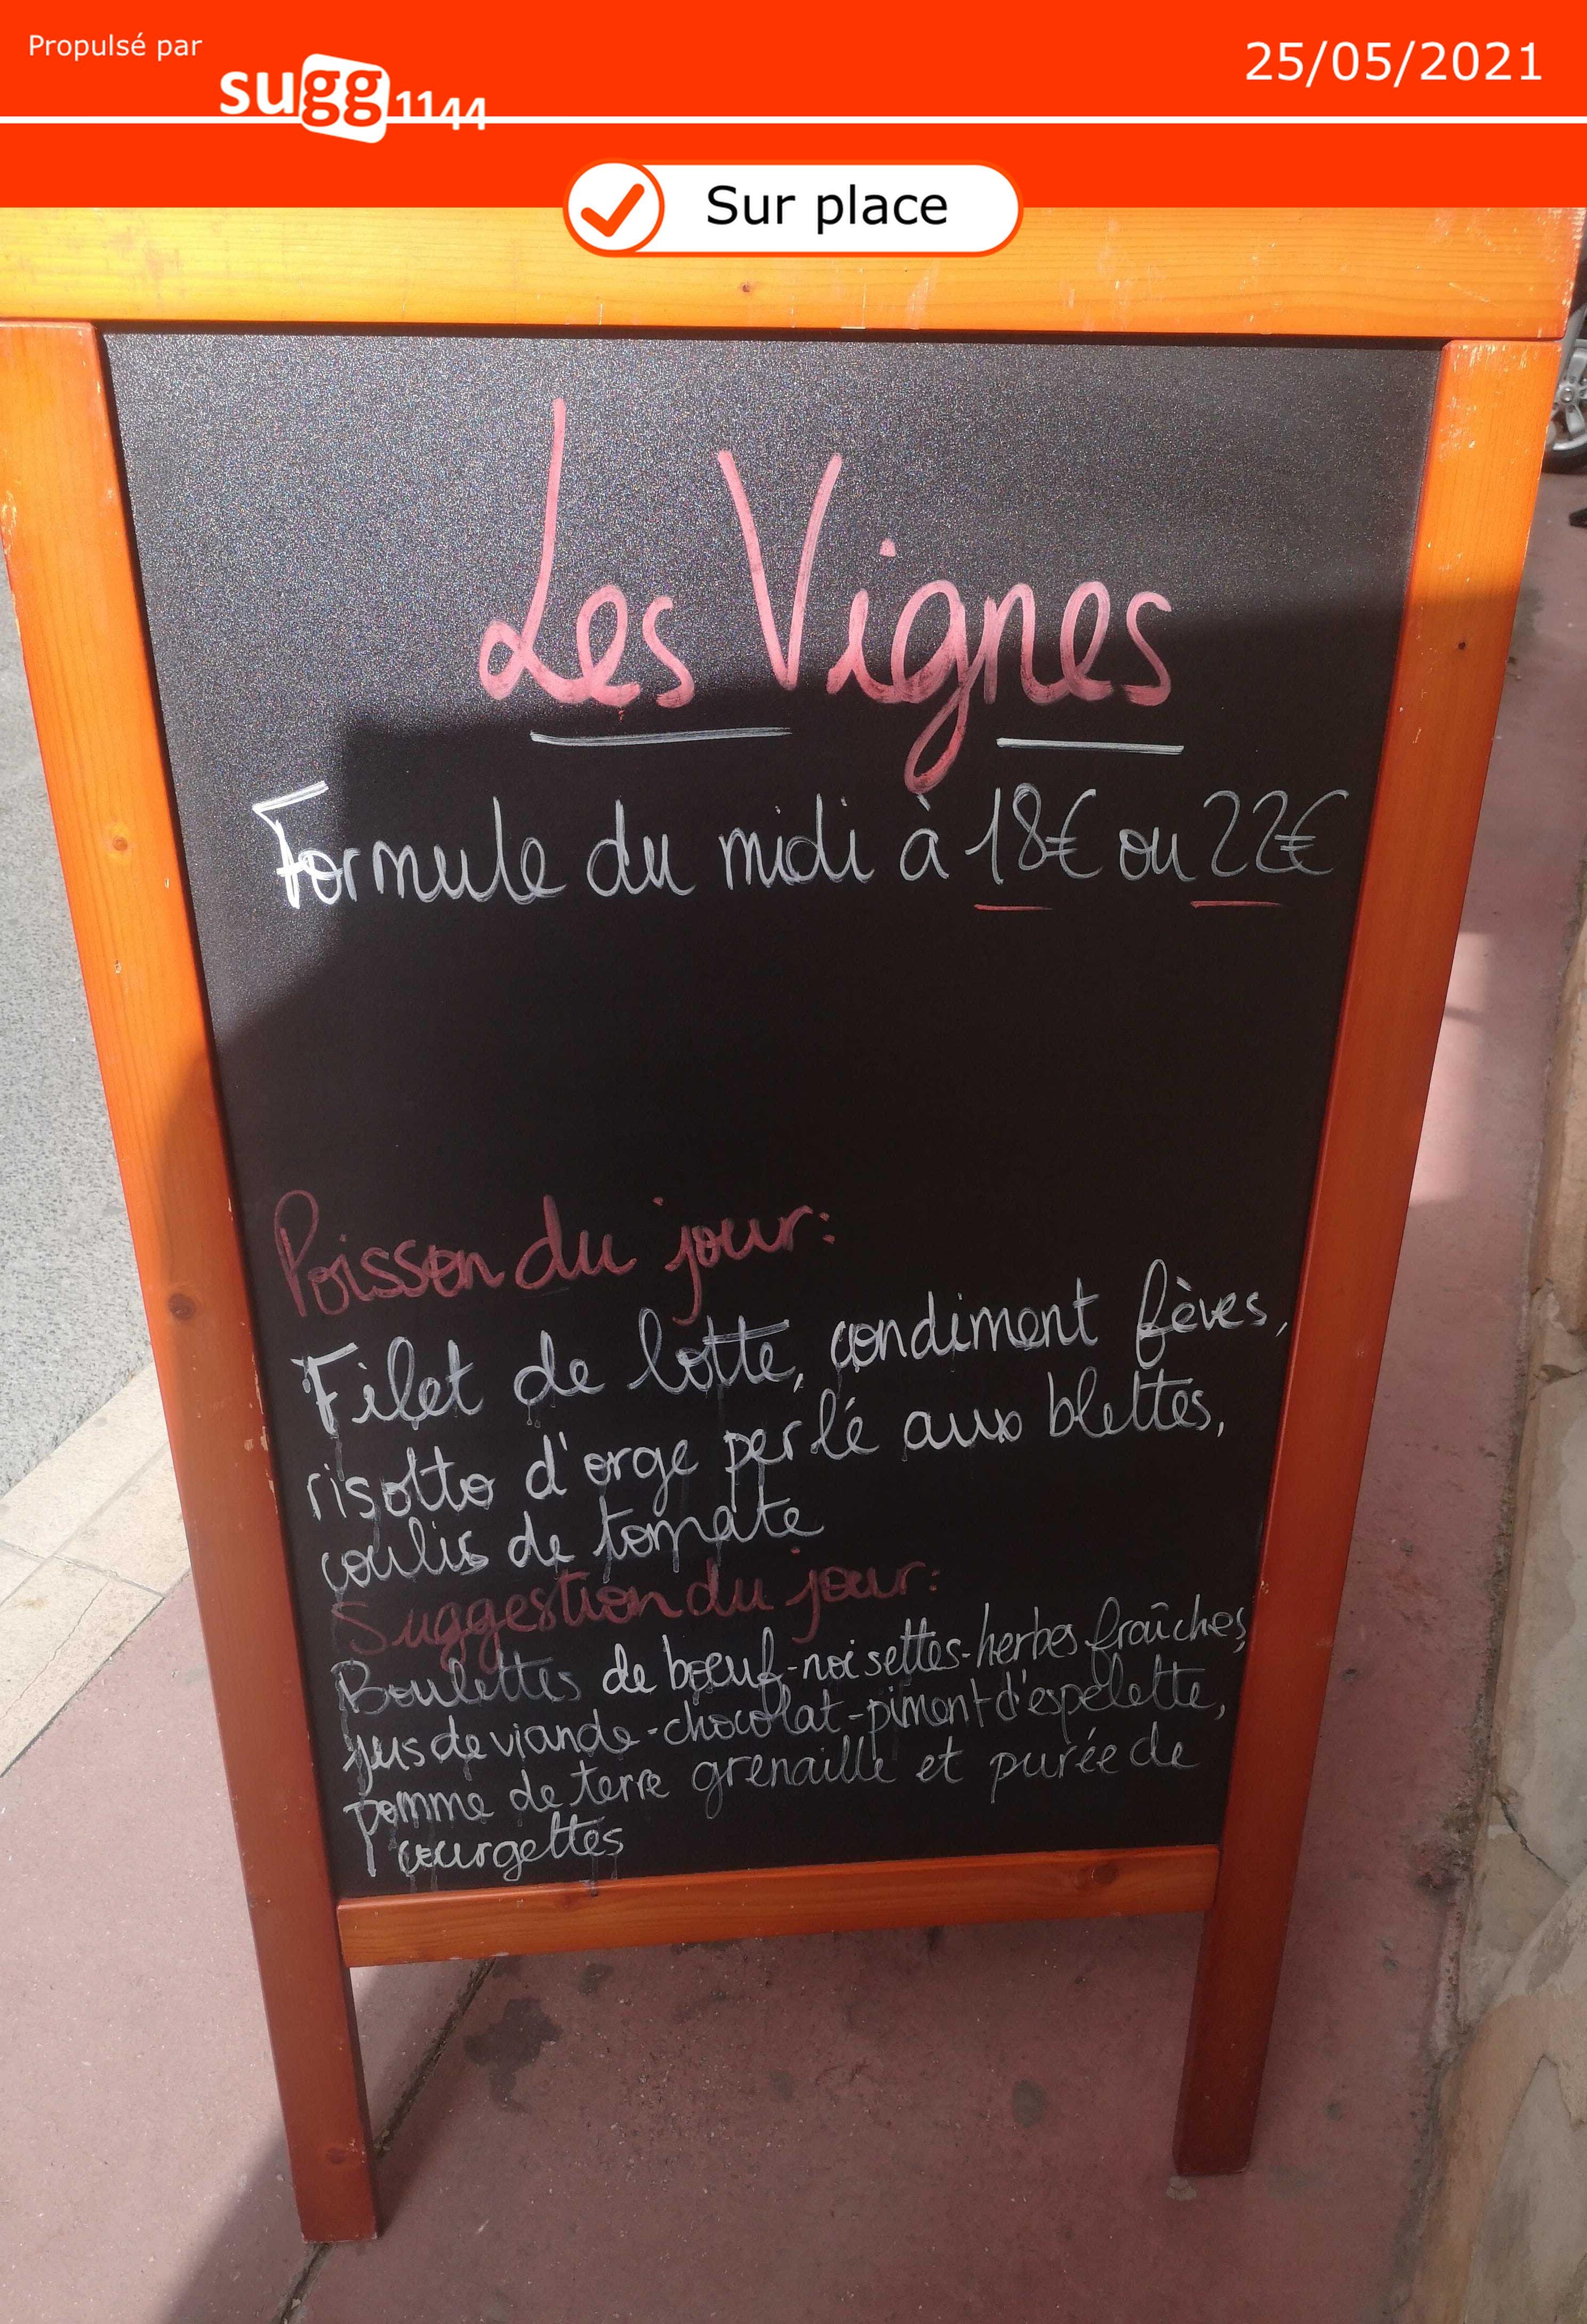 Propulsé par
sugg1144
25/05/2021
Sur place
Les Vignes
Formule du midi à 18€ ou 22€
Poisson du jour:
Filet de lotte, condiment fèves,
risotto d'orge perlé aux blettes,
coulis de tomate
Suggestion du jour:
Boulettes de bœuf-noisettes-herbes fraîches,
jus de viande-chocolat-piment d'espelette,
pomme de terre grenaille et purée de
courgettes